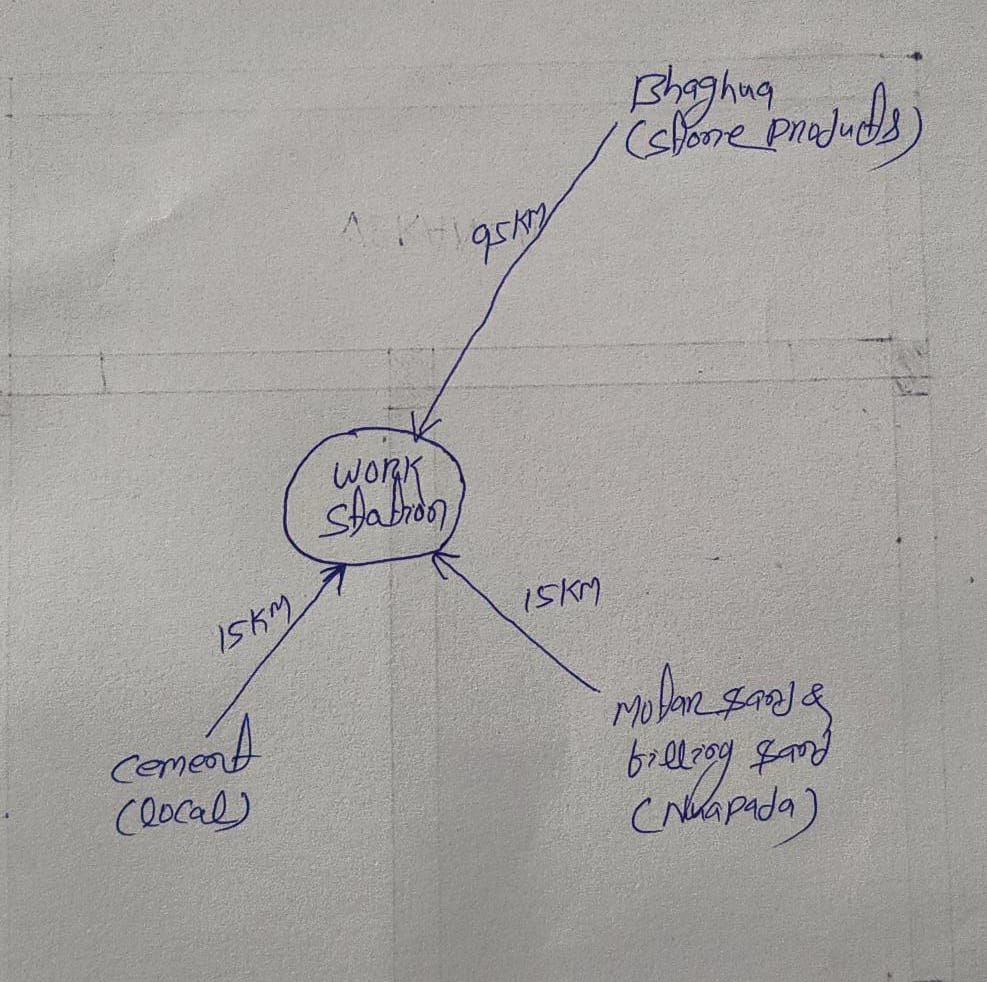 Bhaghua
(stone products)
95KM
work
station
15KM
15KM
Motar sand &
filling sand
(Nuapada)
cement
(local)